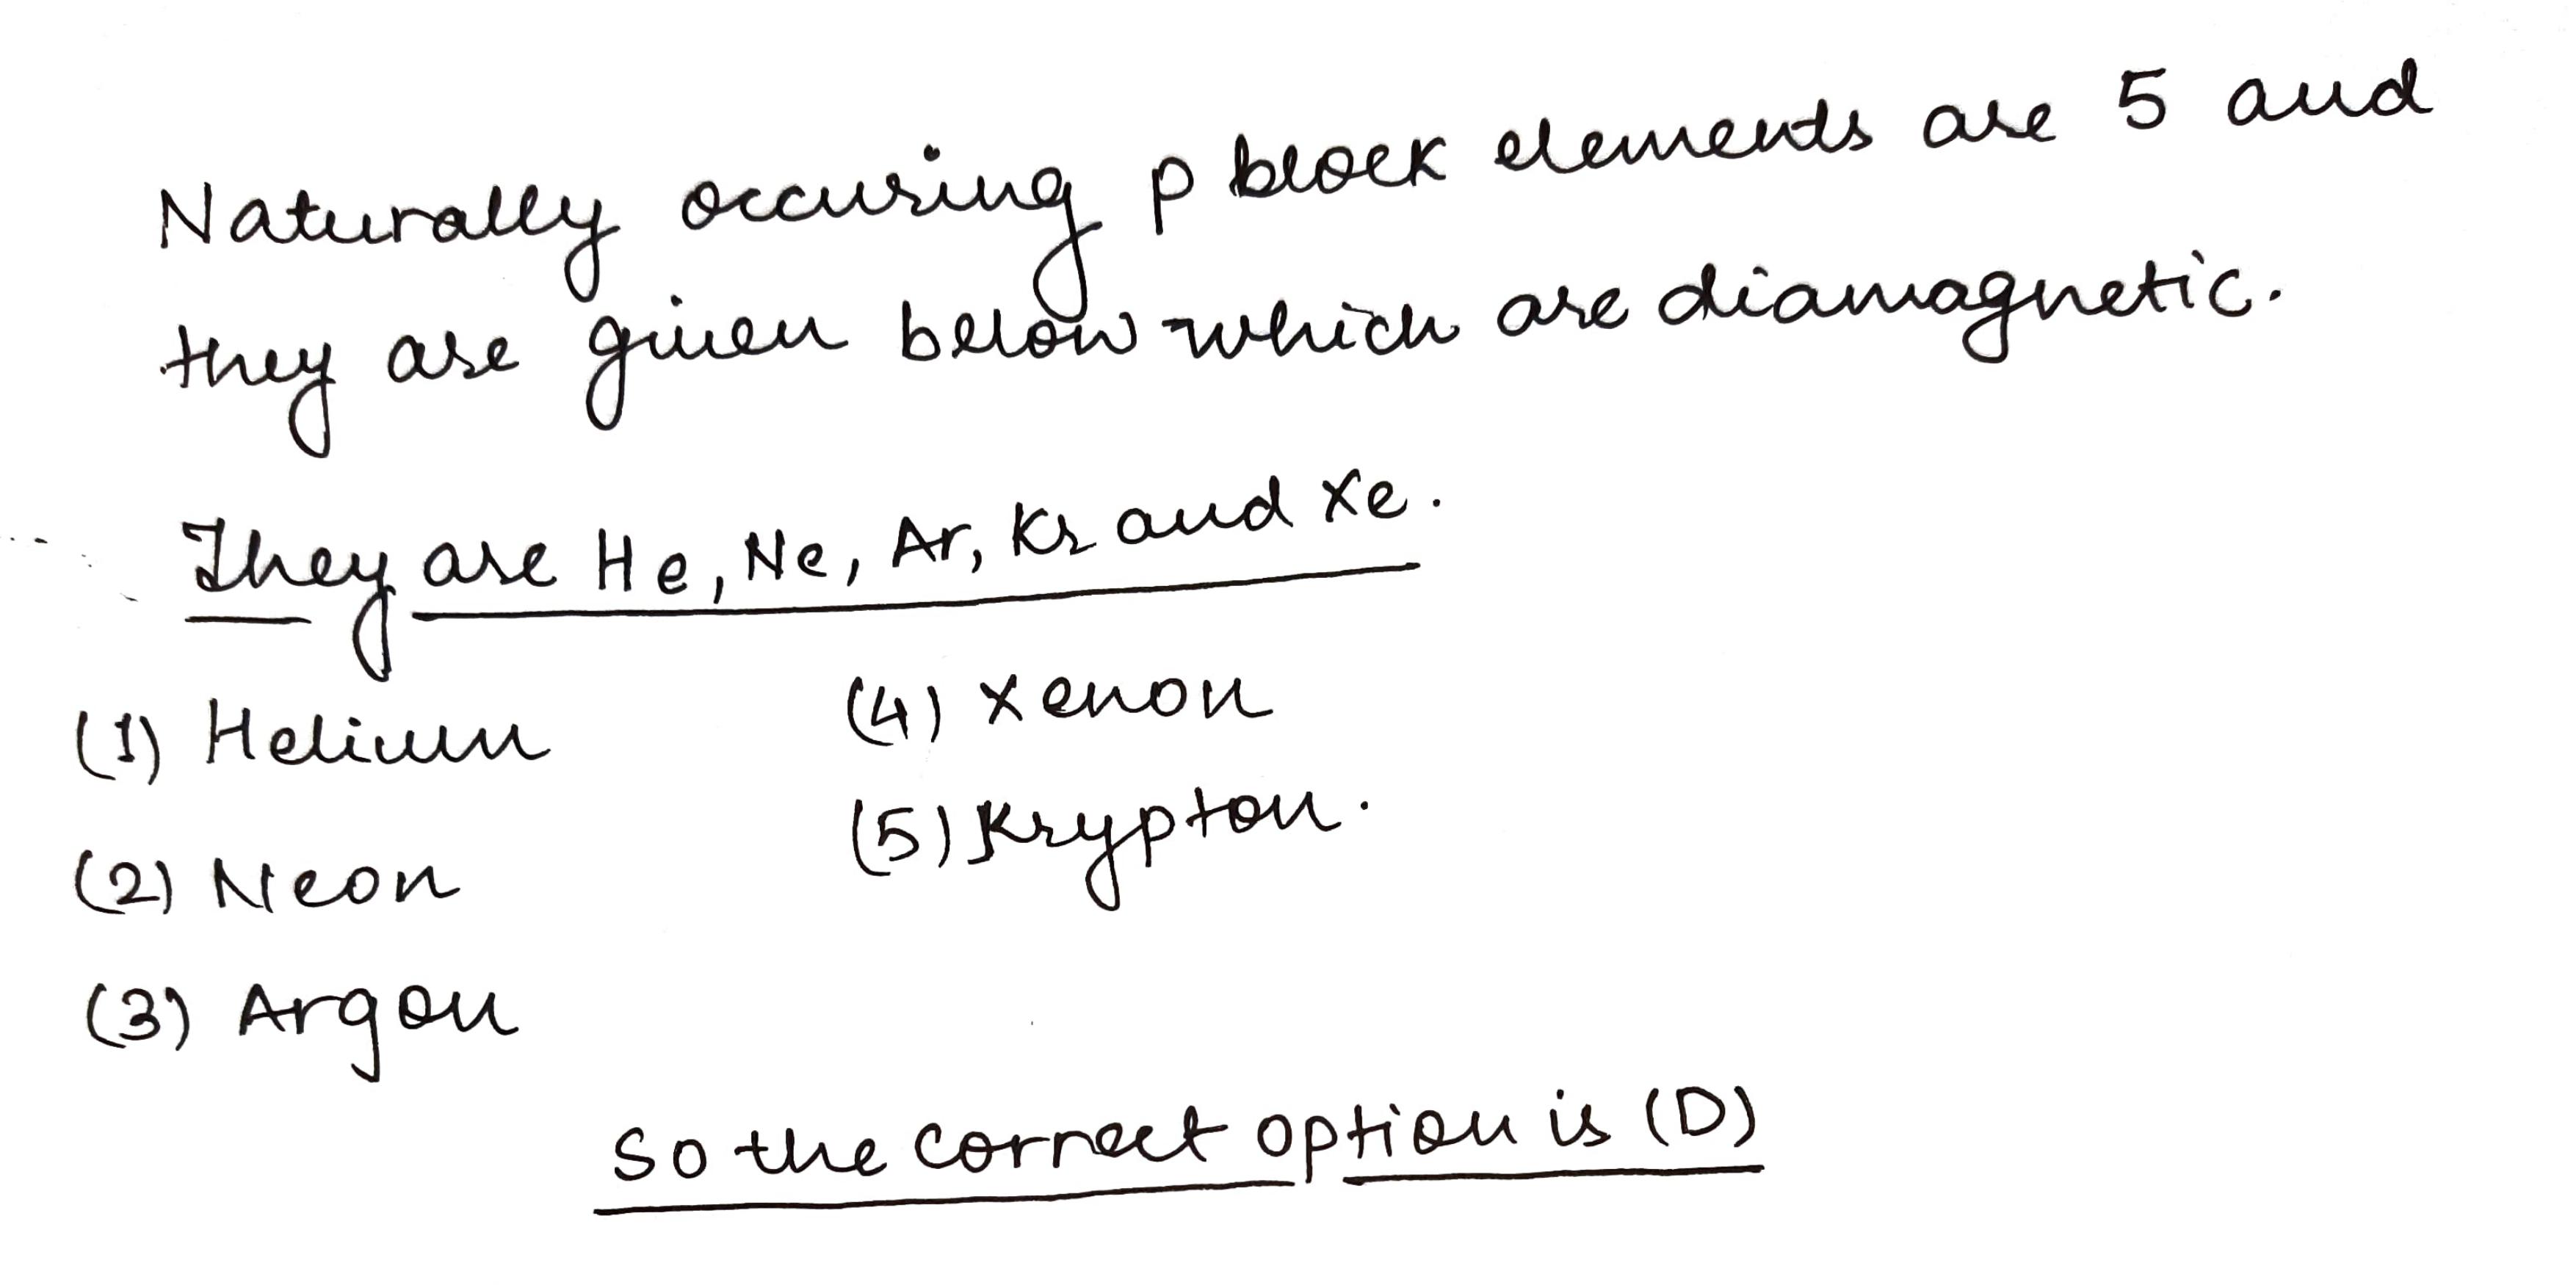 Naturally occuring p block elements are 5 and
they are given below which are diamagnetic.
They are He, Ne, Ar, Kr and Xe.
(1) Helium
(2) Neon
(3) Argon
(4) Xenon
(5) Krypton.
So the correct option is (D)